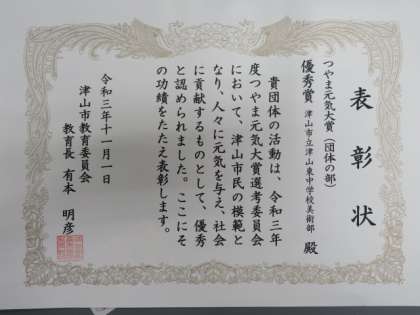 表彰状
つやま元気大賞(団体の部)
優秀賞 津山市立津山東中学校美術部 殿
貴団体の活動は、令和三年
度つやま元気大賞選考委員会
において、津山市民の模範と
なり、人々に元気を与え、社会
に貢献するものとして、優秀
と認められました。ここにそ
の功績をたたえ表彰します。
令和三年十一月一日
津山市教育委員会
教育長 有本 明彦